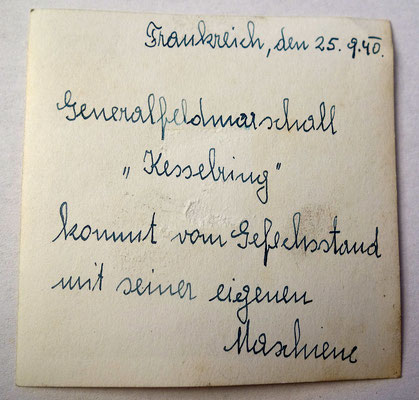 Frankreich, den 25. 9. 40.
Generalfeldmarschall
„Kesselring"
kommt vom Gefechsstand
mit seiner eigenen
Maschiene